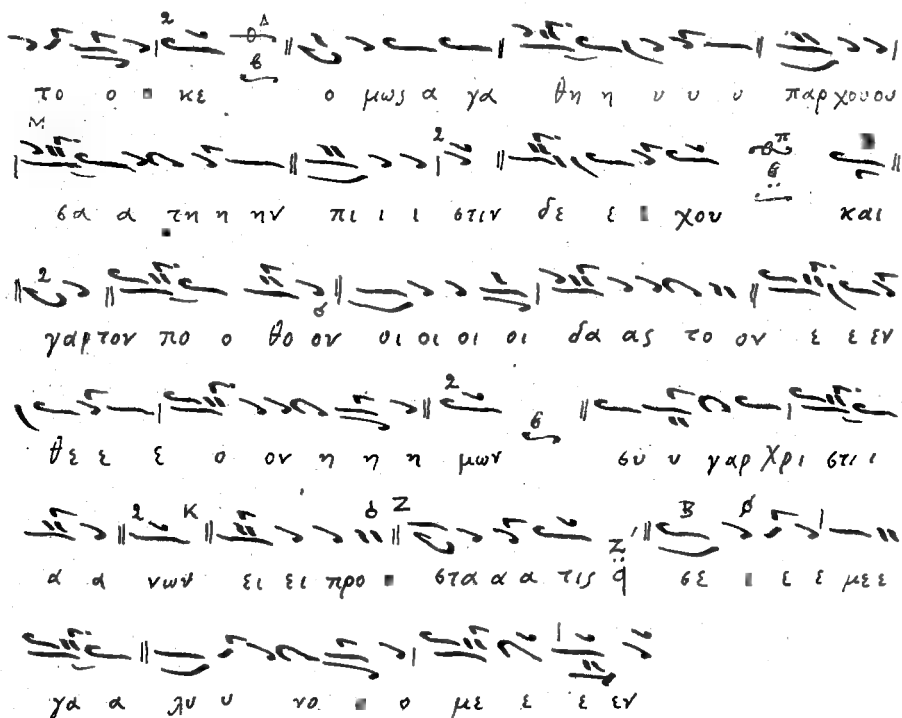 το ο κε ο μως α γα θη η υ υ υ παρ χου ου
σα α τη η ην πι ι ι στιν δε ε χου και
γαρ τον πο ο θο ον οι οι οι οι δα ας το ον ε ε εν
θε ε ε ο ον η η η μων συ υ γαρ χρι στι ι
α α νων ει ει προ στα α α τις σε ε ε με ε
γα α λυ υ νο ο με ε ε εν